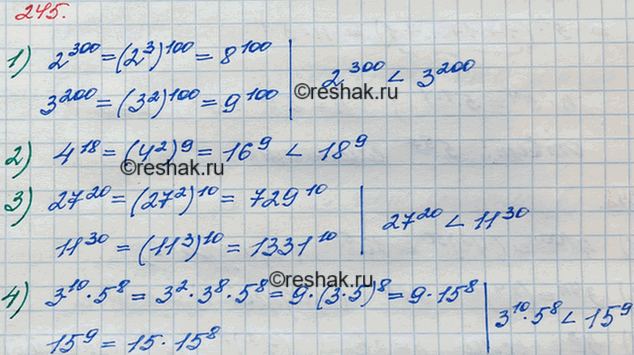 245.
1) 2^300 = (2^3)^100 = 8^100 | 2^300 < 3^200
3^200 = (3^2)^100 = 9^100
©reshak.ru
2) 4^18 = (4^2)^9 = 16^9 < 18^9
©reshak.ru
3) 27^20 = (27^2)^10 = 729^10 | 27^20 < 11^30
11^30 = (11^3)^10 = 1331^10
©reshak.ru
4) 3^10 · 5^8 = 3^2 · 3^8 · 5^8 = 9 · (3·5)^8 = 9 · 15^8 | 3^10 · 5^8 < 15^9
15^9 = 15 · 15^8